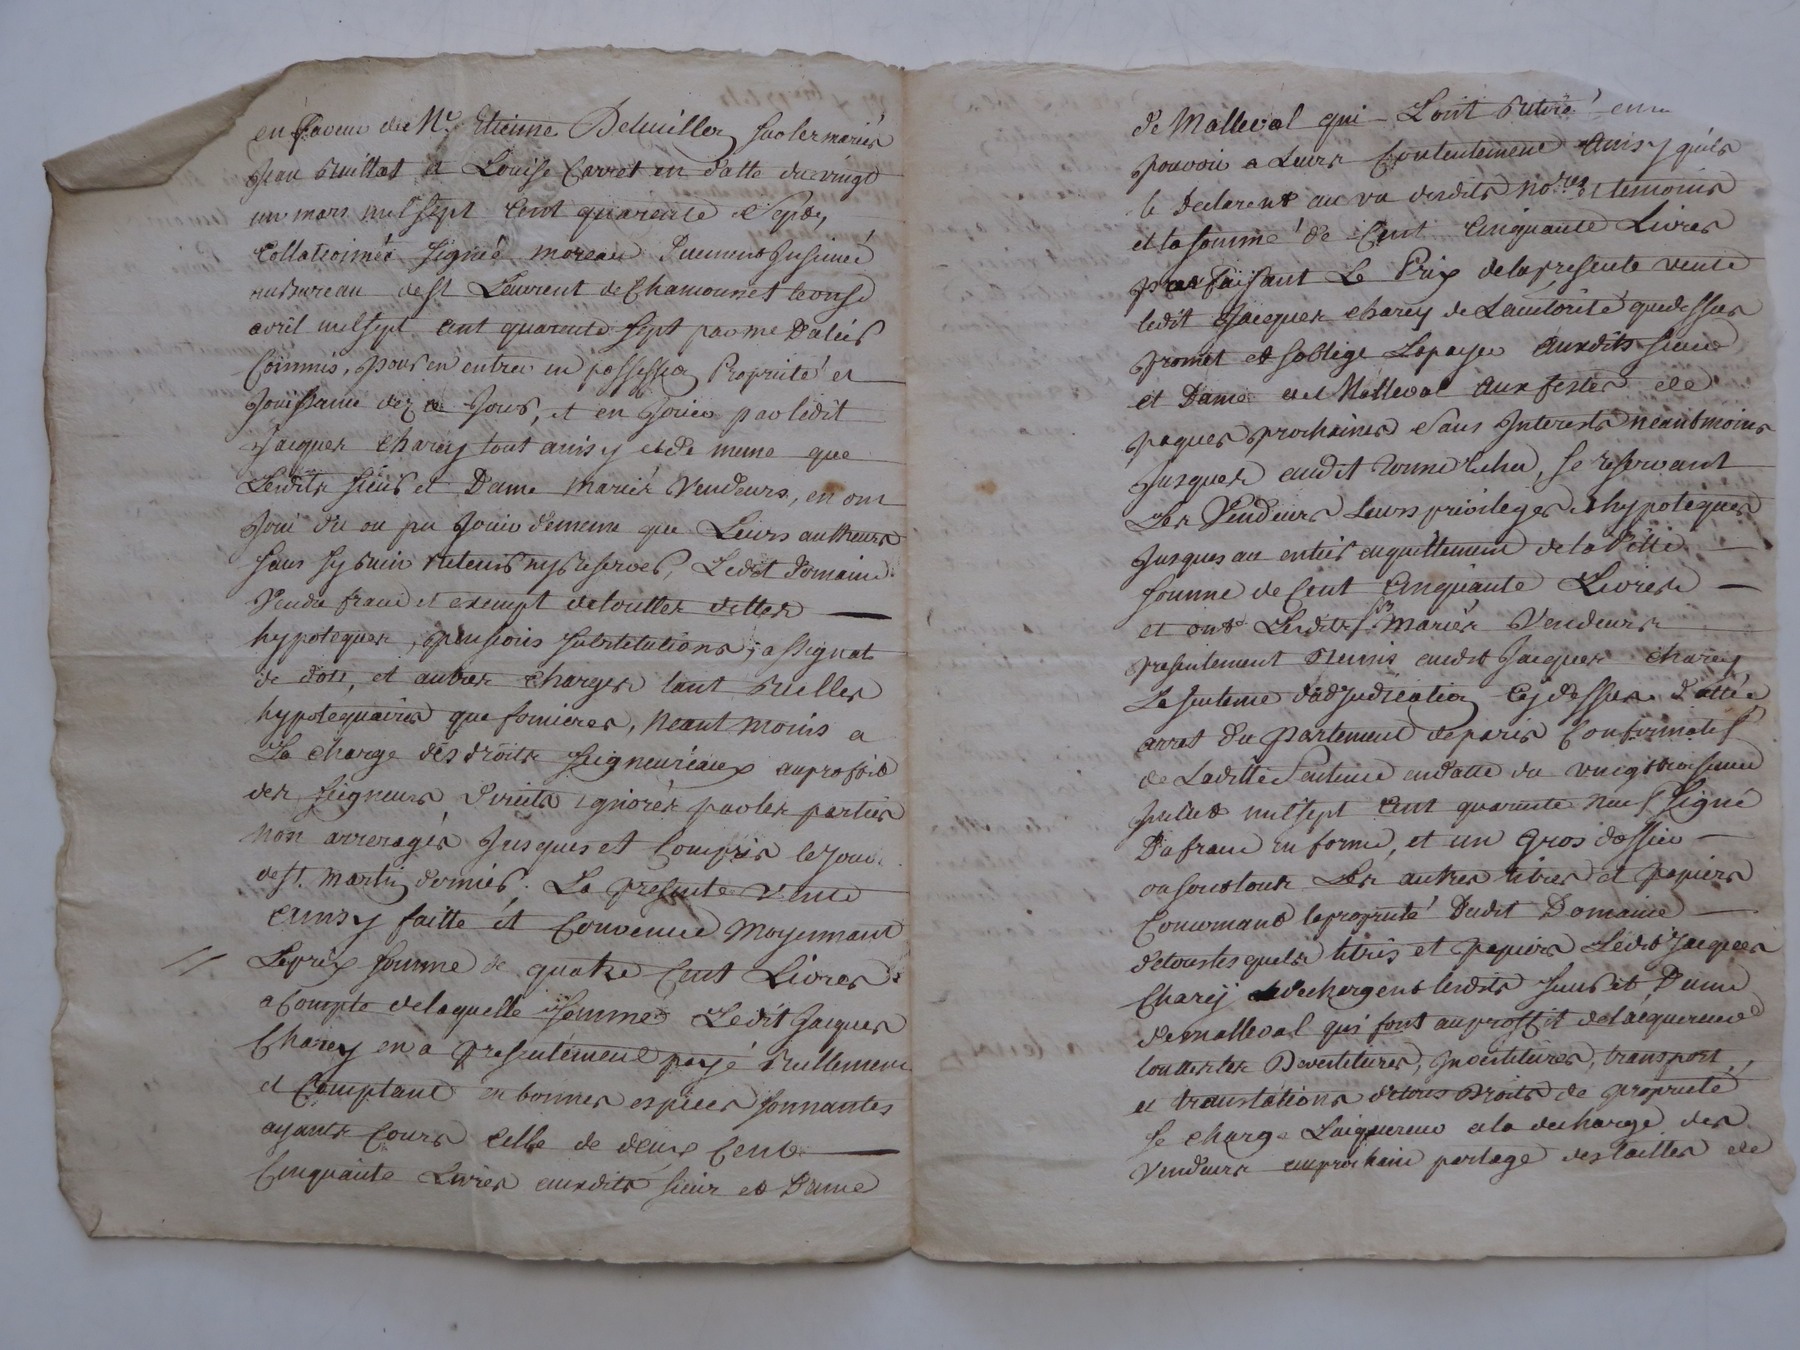 en faveur de Mr. Etienne Deluillier par les mariés
Jean Ruillat et Louise Carret en datte du vingt
un mars mil sept cent quarente Sept,
Collationnée signée moreau Duement Insinué
au Bureau de St Laurent de Chamounet le onse
avril mil sept cent quarente sept par me Daleis
Commis, pour en entrer en possession Proprieté et
Jouissance dez ce Jour, et en Jouir par ledit
Jacques Charey tout ainsy et de meme que
Lesdits sieur et Dame Mariés Vendeurs, en ont
Joui du ou pu Jouir de meme que Leurs autheurs
sans sy rien retenir ny Reserver, Ledit Domaine
Vendu franc et exempt de touttes dettes
hypoteques, pensions substitutions, assignat
de dots, et autres charges tant reelles
hypotequaires que foncieres, neant moins a
La charge des droits seigneuriaux au profit
des seigneurs Directs ignorés par les parties
non arreragés Jusques et Compris le Jour
de St. Martin dernier. La presente vente
ainsy faitte et Convenue Moyennant
Le prix somme de quatre Cent Livres
a Compte de laquelle somme Ledit Jacques
Charey en a presentement payé réellement
et Comptant en bonnes espèces sonnantes
ayants cours celle de deux Cent
Cinquante Livres auxdits sieur et Dame
de Malleval qui L'ont retiré en
pouvoir a Leurs Contentement ainsy quils
le Declarent au vu desdits nores et temoins
et la somme de Cent Cinquante Livres
parfaisant Le Prix de la presente vente
ledit Jacques Charey de Lautorité que dessus
promet et soblige La payer auxdits sieur
et Dame de Malleval aux festes de
paques prochaines Sans Interests neantmoins
Jusques audit terme echu, se reservant
Les Vendeurs Leurs privileges et hypoteques
Jusques au entier acquittement de la ditte
somme de Cent Cinquante Livres
et ont Lesdits srs Mariés Vendeurs
presentement remis audit Jacques Charey
La sentence dadjudication cy dessus dattée
arret du Parlement de paris Confirmatif
de Laditte Sentence en datte du vingt troisieme
Juillet mil sept cent quarente neuf signé
Dufranc en forme, et un gros dossier
ou sont tous Les autres titres et papiers
Concernant la proprieté Dudit Domaine
de tous lesquels titres et papiers Ledit Jacques
Charey decharge lesdits sieur et Dame
de malleval qui font au profit de lacquereur
touttes les Devestitures, investitures, transport,
et translations de tous Droits de proprieté
se charge Laquereur a la decharge des
Vendeurs au prochain partage des tailles de